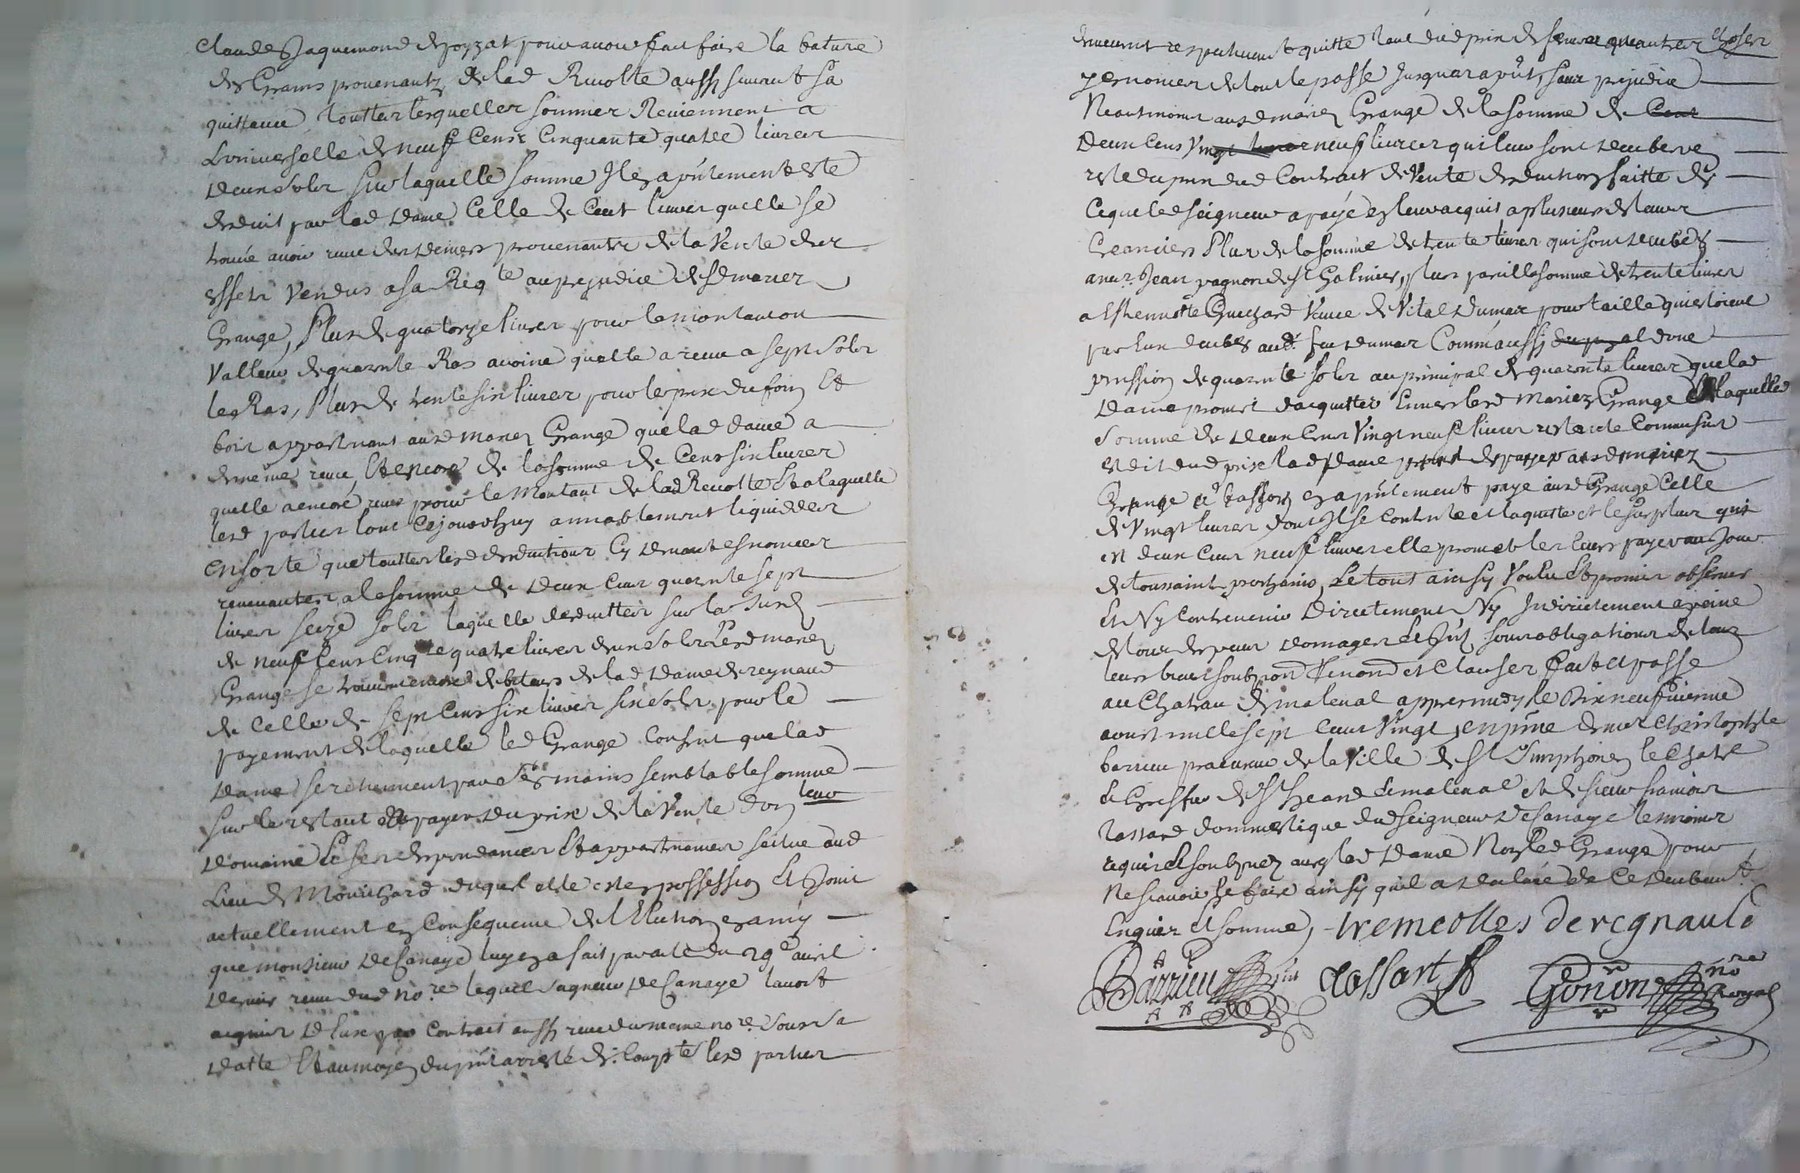 Claude Jaquemond de pour avoir fait faire la bature
des Grains provenantz de lad Recolte aussy suivant sa
quittance, touttes lesquelles sommes Reviennent a
L'universelle de neuf Cents Cinquante quatre livres
deux sols sur laquelle somme Il en a pñtement este
deduit par lad Dame Celle de Cent livres quelle se
trouve avoir receue des deniers provenants de la Vente des
effets Vendus a sa Reqte au prejudice desd mariez
Grange, Plus de quatorze livres pour le montant ou
Valleur de quarante Ras avoine quelle a receu a sept sols
le Ras, Plus de trente six livres pour le prix du foin Et
bois appartenant ausd mariez Grange que lad dame a
de meme receu, Et encore de la somme de Cent six livres
quelle a encore receu pour le Montant de lad Recolte Et a laquelle
lesd parties l'ont Cejourdhuy amiablement liquidées
En sorte que touttes lesd deductions Cy devant esnoncees
revenantes a la somme de Deux Cens quarante sept
livres seize sols laquelle deduitte sur la susd
de neuf Cens Cinqte quatre livres deux sols Lesd mariez
Grange se trouvent encore debiteurs de lad Dame de reynaud
de Celle de sept Cens six livres six sols pour le
payement de laquelle led Grange Consent que lad
Dame se retienne par ses mains semblable somme
sur le restant a payer du prix de la Vente d'un leur
Domaine Et ses dependances Et appartenances scitue aud
Lieu de Montchard duquel elle est en possession Et Jouit
actuellement en Consequence de l'Election en amy
que monsieur De Canaye luy en a fait par acte du 29e avril
dernier receu dud nore lequel seigneur De Canaye l'avoit
acquis d'Eux par Contrait aussy receu du meme nore sous sa
datte Et au moyen du pñt arresté de Compte lesd parties
demeurent respectivement quitte tant dud prix de ferme que autres choses
y esnoncees de tout le passe Jusques a pñt sans prejudice
Neantmoins ausd mariez Grange de la somme de Cent
Deux Cens Vingt livres neuf livres qui leur sont deubs de
reste du prix dud Contrait de Vente deduction faitte de
Ce que led seigneur a payé en leur acquis a plusieurs de leurs
Creanciers Plus de la somme de trente livres qui sont deubes
a mr Jean pagnon de St Galmier, plus pareille somme de trente livres
a Estiennette Veuve de Vital Dumas pour taille qui estoient
par Eux deubes aud feu dumas Comme aussy d'une
pention de quarante sols au principal de quarante livres que lad
Dame promet d'acquitter Envers lesd Mariez Grange Et laquelle
somme de deux Cens Vingt neuf livres restante Comme sus
est dit dud prix lad Dame promet de payer ausd mariez
Grange en a pñtement paye aud Grange Celle
de Vingt livres dont Il se Contente et la quitte et le surplus qui
est deux Cens neuf livres elle promet les leurs payer au Jour
de toussaint prochaine, Le tout ainsy Voulu Et promis observer
Et Ny Contrevenir Directement Ny Indirectement a peine
de tous despens domages Et Jnts sous obligations de tous
leurs biens soubmon Renond et Clauses fait et passe
au Chateau de malleval appres midy le Dixneufvieme
aoust mille sept Cent Vingt, en pñce de mre Christophle
barrieu procureur de la Ville de St Simphorien le Chatel
Et Greffier de St heand Et malleval et de sieur francois
tassard dommestique dud seigneur De Canaye temoins
requis Et soubsignez avec lad Dame Non led Grange pour
Ne scavoir le faire ainsy quil a declaré de Ce deubement
Enquis Et somme, tremeolles de regnauld
Barrieu pñt Tassart Gonon nore royal